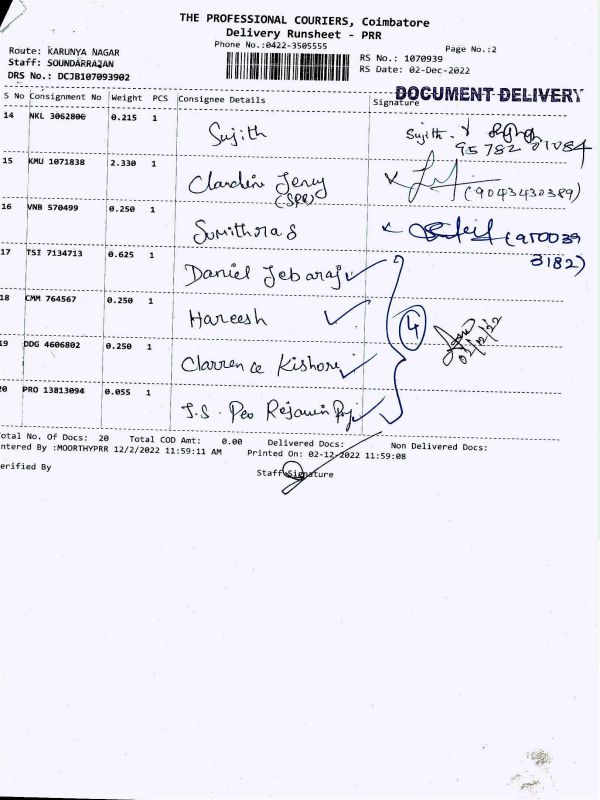 THE PROFESSIONAL COURIERS, Coimbatore
Delivery Runsheet - PRR
Phone No.:0422-3505555
Page No.:2
Route: KARUNYA NAGAR
RS No.: 1070939
Staff: SOUNDARRAJAN
RS Date: 02-Dec-2022
DRS No.: DCJB107093902
DOCUMENT DELIVERY
S No Consignment No Weight PCS Consignee Details Signature
14 NKL 3062800 0.215 1 Sujith Sujith.
95782 01084
15 KMU 1071838 2.330 1 Jency (9043430389)
16 VNB 570499 0.250 1 Sumithra S (950039
3182)
17 TSI 7134713 0.625 1 Daniel Jebaraj
18 CMM 764567 0.250 1 Hareesh 4
02/12/22
19 DDG 4606802 0.250 1 Clarrence Kishore
20 PRO 13813094 0.055 1 J.S.
otal No. Of Docs: 20 Total COD Amt: 0.00 Delivered Docs: Non Delivered Docs:
ntered By :MOORTHYPRR 12/2/2022 11:59:11 AM Printed On: 02-12-2022 11:59:08
erified By Staff Signature